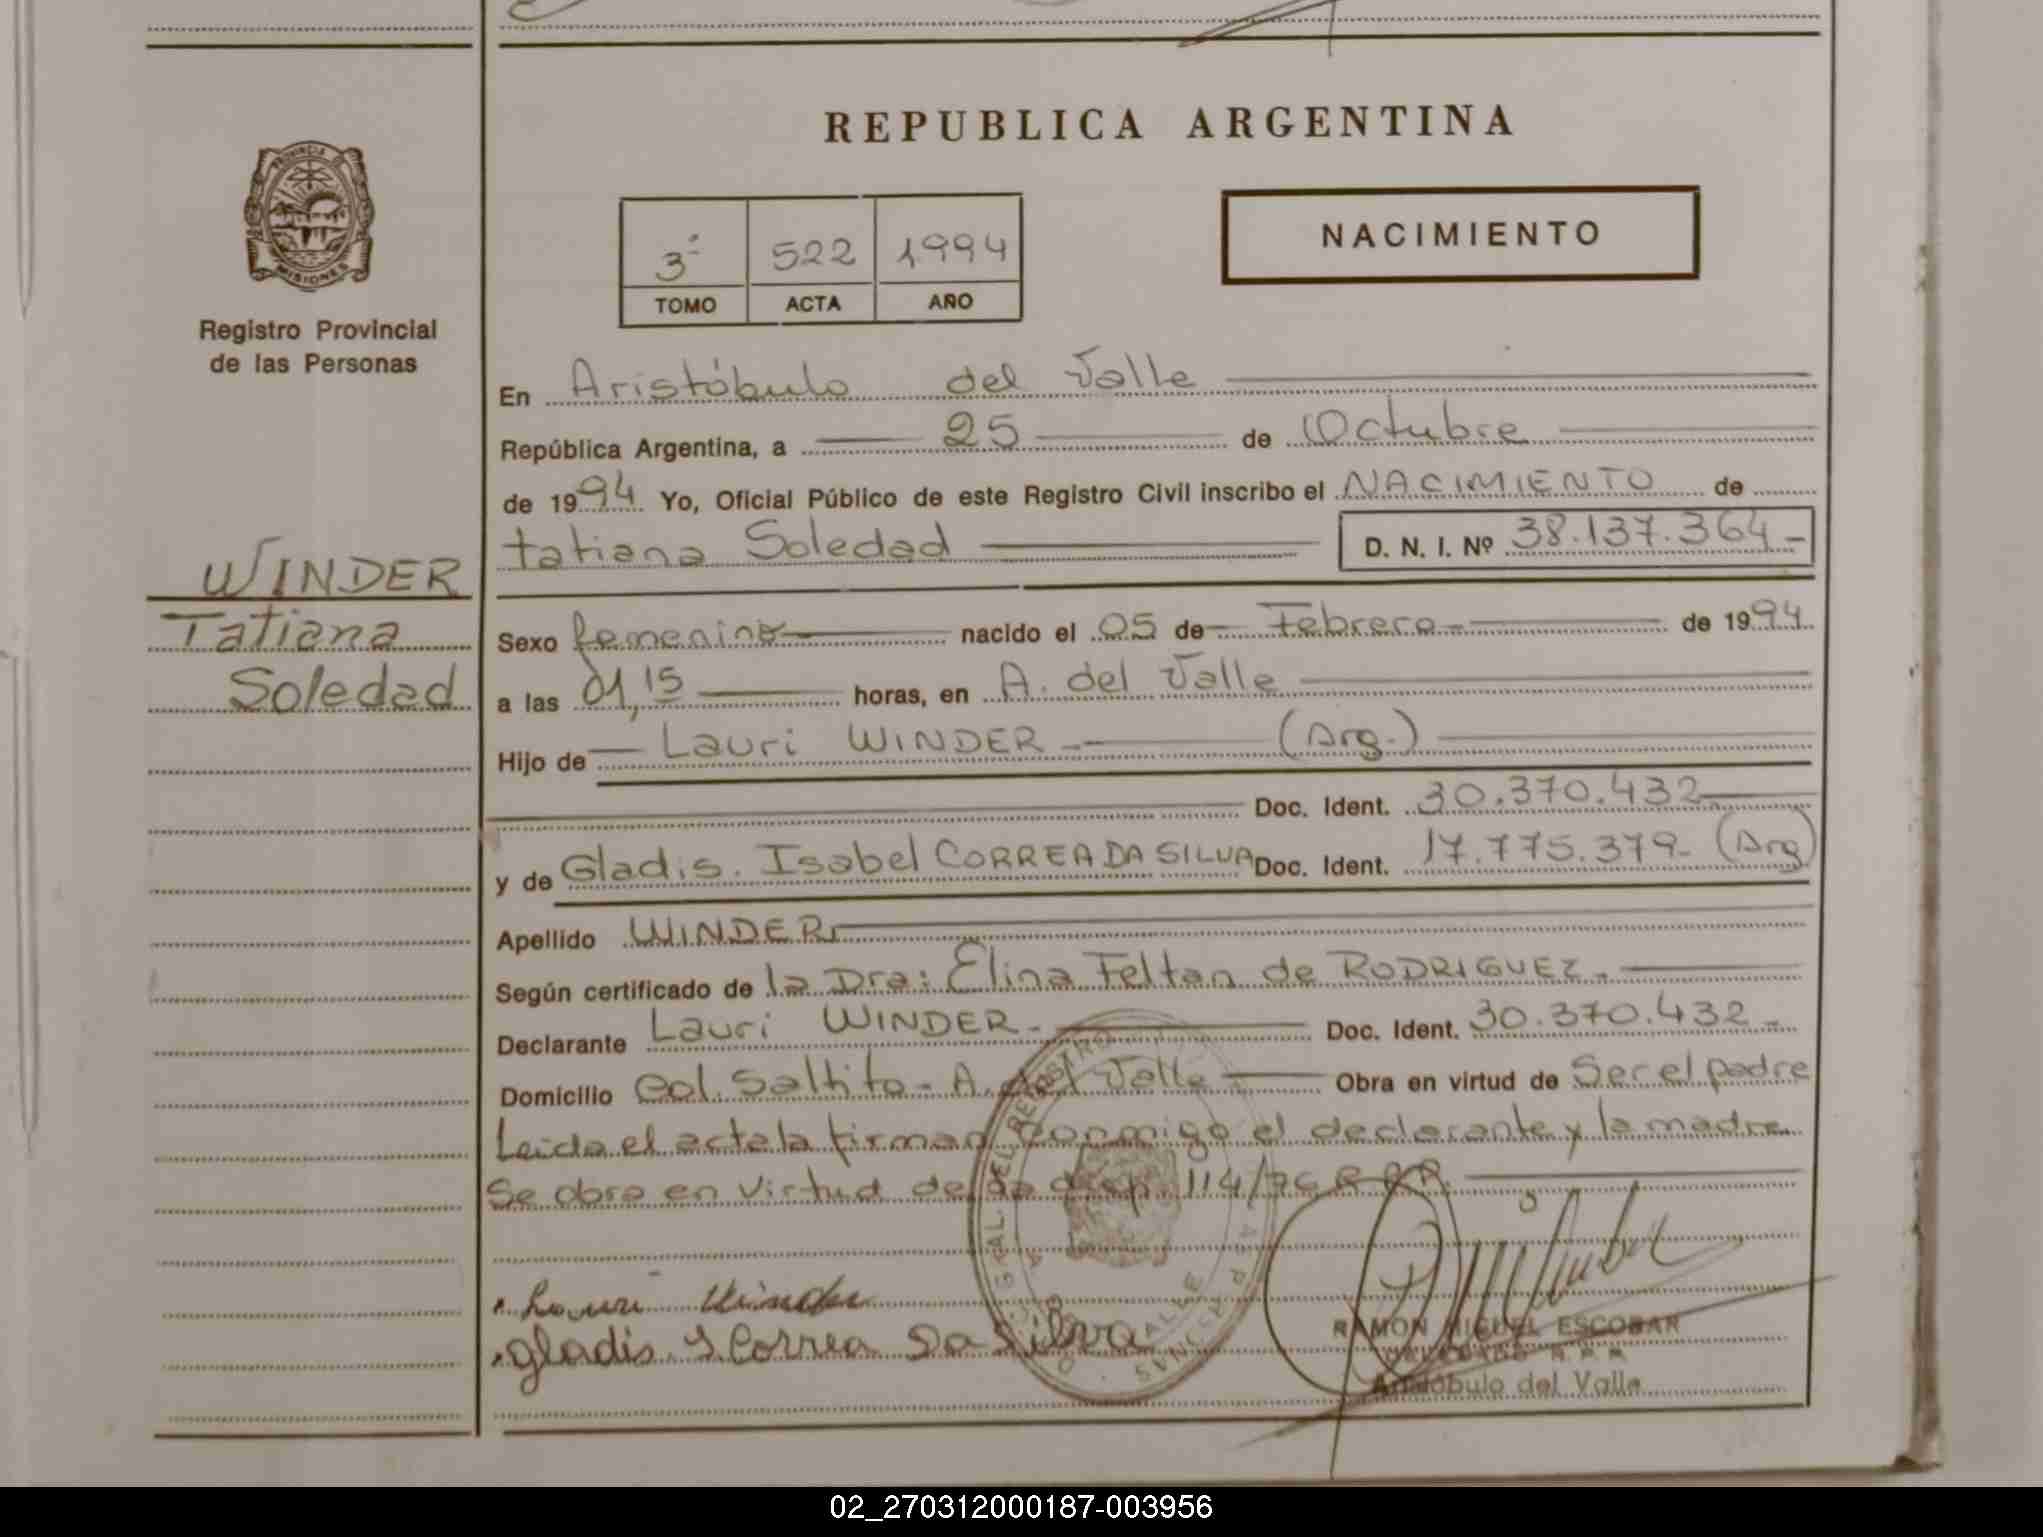 REPUBLICA ARGENTINA
PROVINCIA DE
MISIONES
Registro Provincial
de las Personas
3° 522 1994
TOMO ACTA AÑO
NACIMIENTO
En Aristóbulo del Valle
República Argentina, a 25 de Octubre
de 1994 Yo, Oficial Público de este Registro Civil inscribo el NACIMIENTO de
tatiana Soledad D. N. I. Nº 38.137.364-
WINDER
Tatiana
Soledad
Sexo femenino nacido el 05 de Febrero de 1994
a las 01,15 horas, en A. del Valle
Hijo de Lauri WINDER (Arg.)
Doc. Ident. 30.370.432
y de Gladis. Isabel CORREA DA SILVA Doc. Ident. 17.775.379- (Arg)
Apellido WINDER
Según certificado de la Dra: Elina Feltan de RODRIGUEZ.
Declarante Lauri WINDER Doc. Ident. 30.370.432-
Domicilio Col. Saltito - A. del Valle Obra en virtud de Ser el padre
Leida el acta la firman conmigo el declarante y la madre
Se obra en virtud de la disp. 114/76
Lauri Winder
gladis I Correa Da Silva
RAMON MIGUEL ESCOBAR
Aristóbulo del Valle
02_270312000187-003956